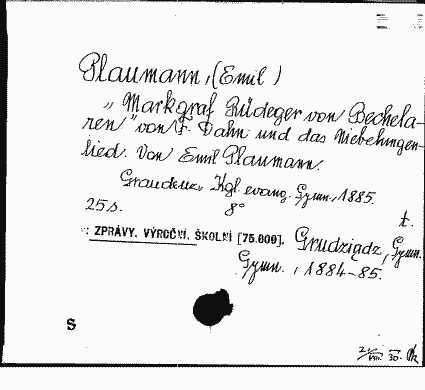 Plaumann, (Emil)
„Markgraf Rüdeger von Bechela-
ren" von F. Dahn und das Niebelungen-
lied. Von Emil Plaumann.
Graudenz, Kgl. evang. Gymn., 1885.
25 s. 8° t.
: ZPRÁVY. VÝROČNÍ. ŠKOLNÍ [75.000]. Grudziądz, Gymn.
Gymn., 1884-85.
S